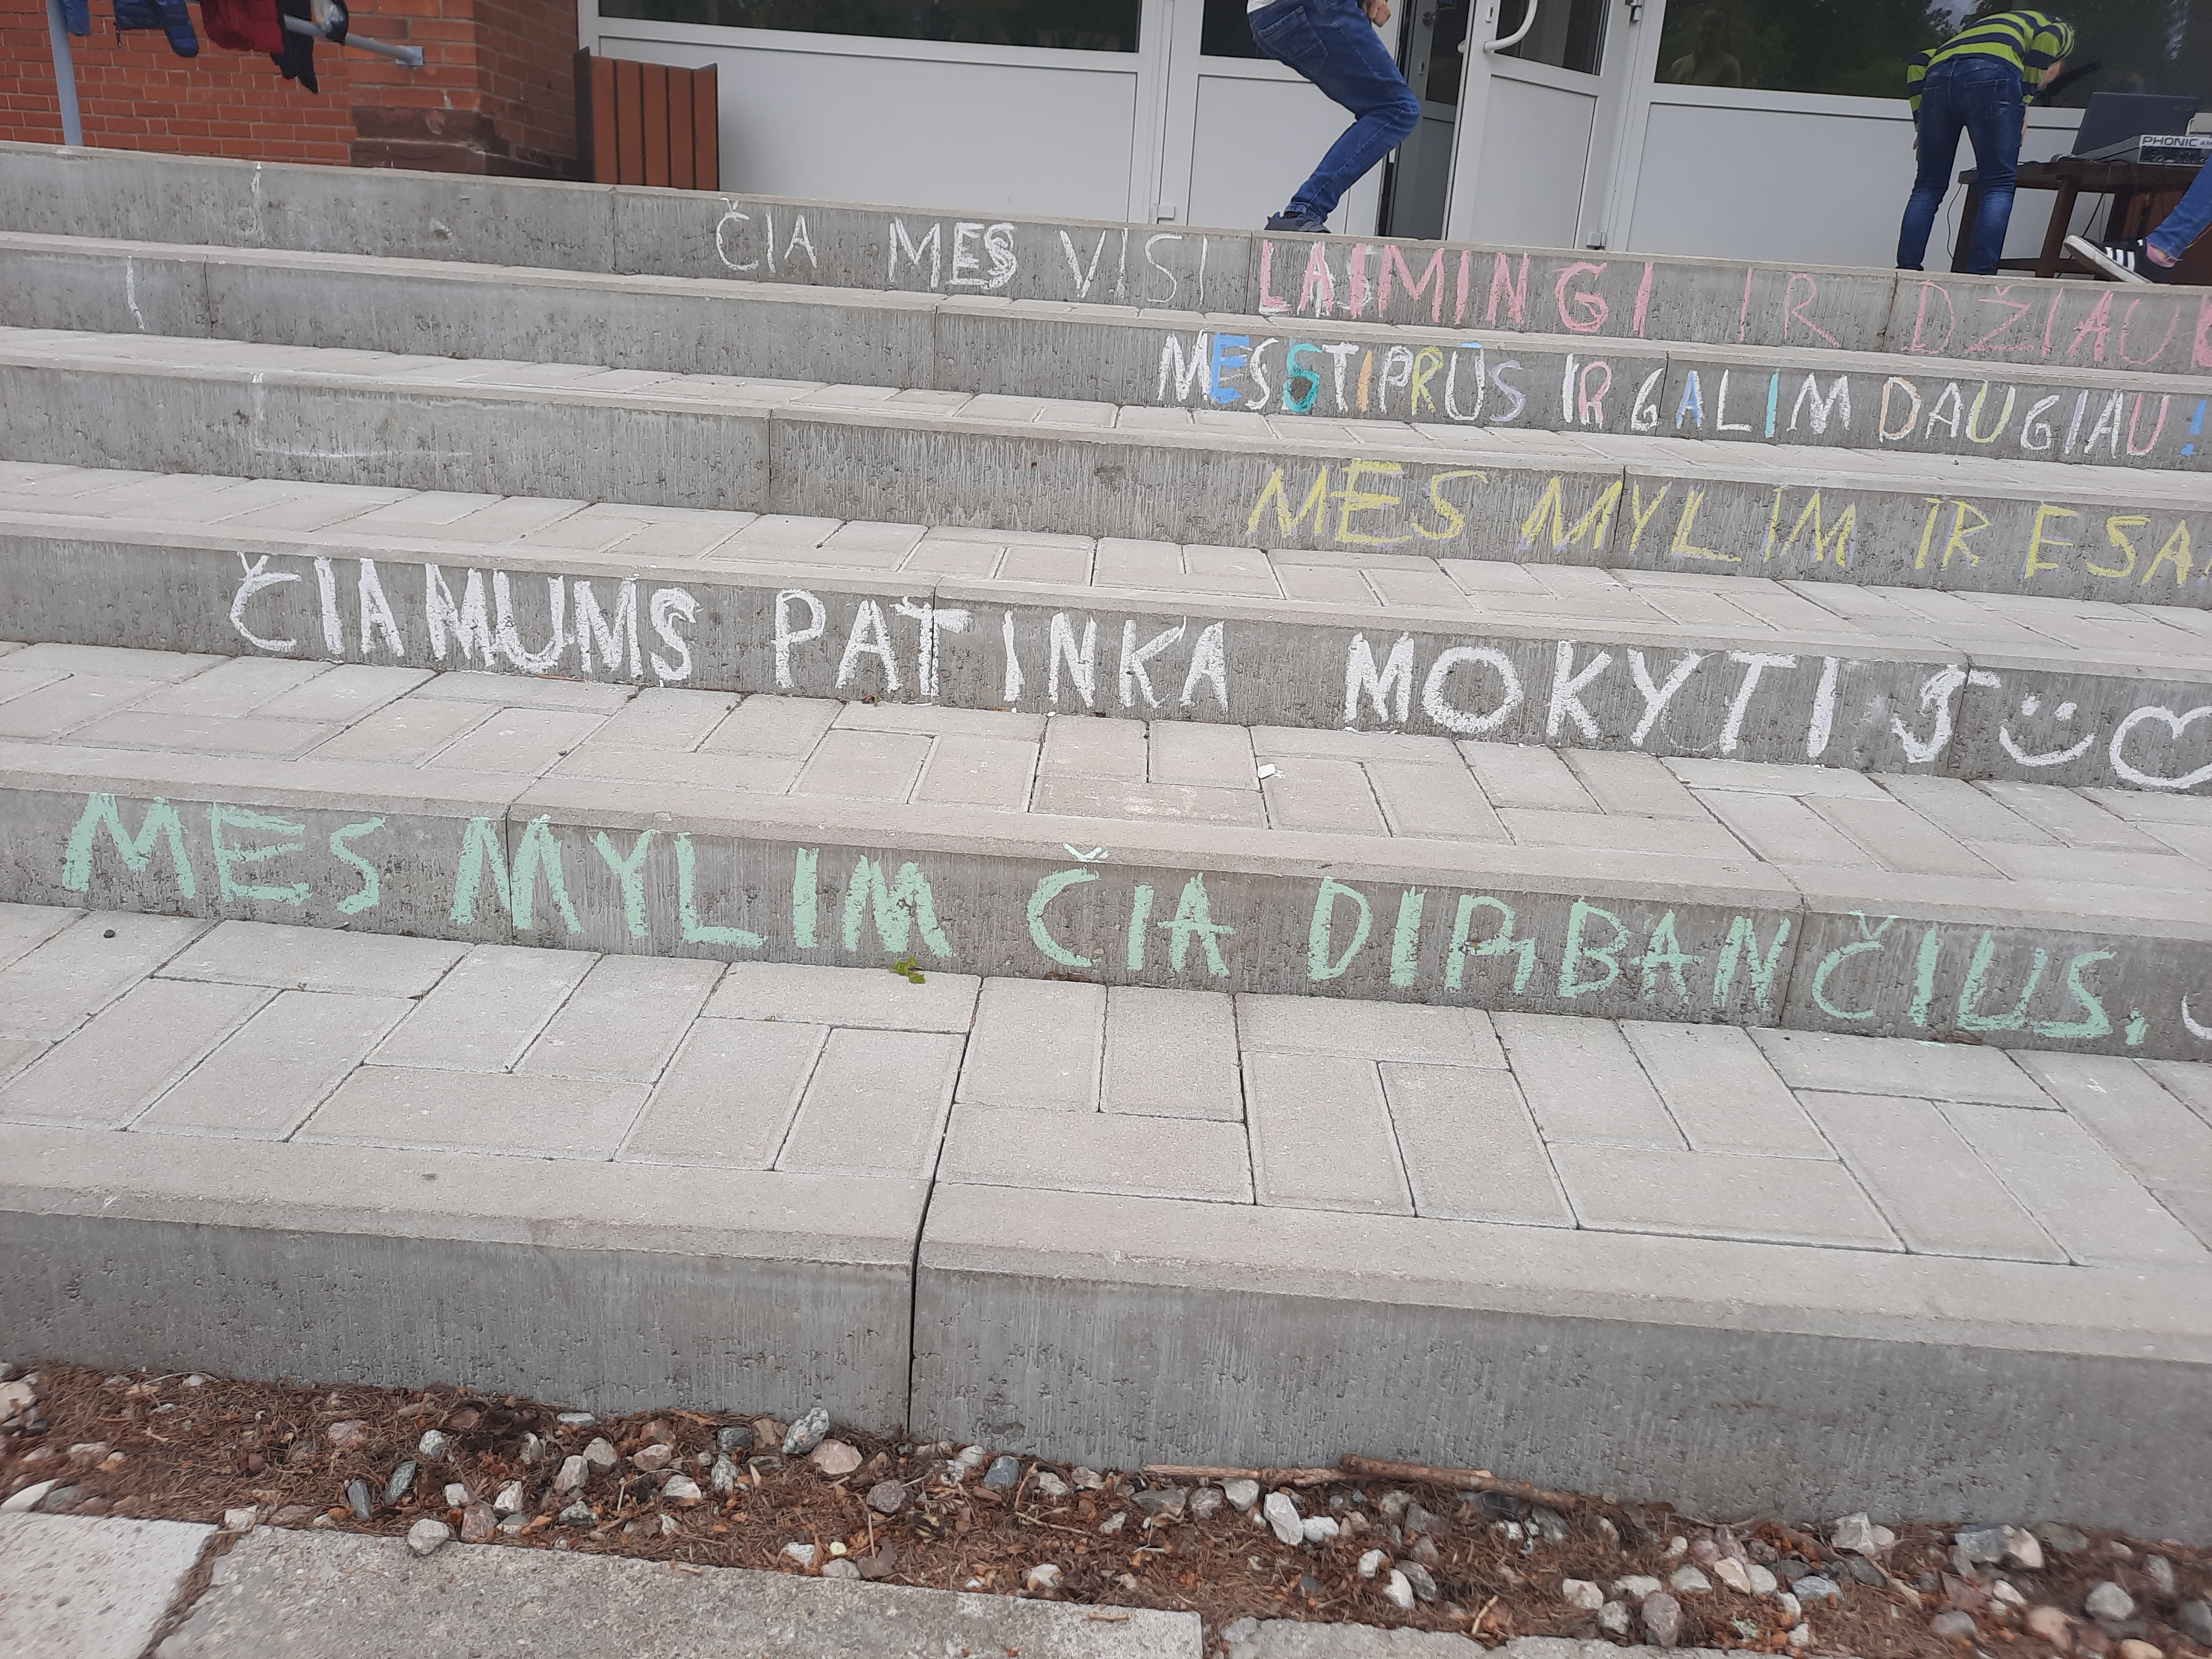 ČIA MES VISI LAIMINGI IR DŽIAU
MES STIPRŪS IR GALIM DAUGIAU!
MES MYLIM IR ESA
ČIA MUMS PATINKA MOKYTIS
MES MYLIM ČIA DIRBANČIUS,
PHONIC